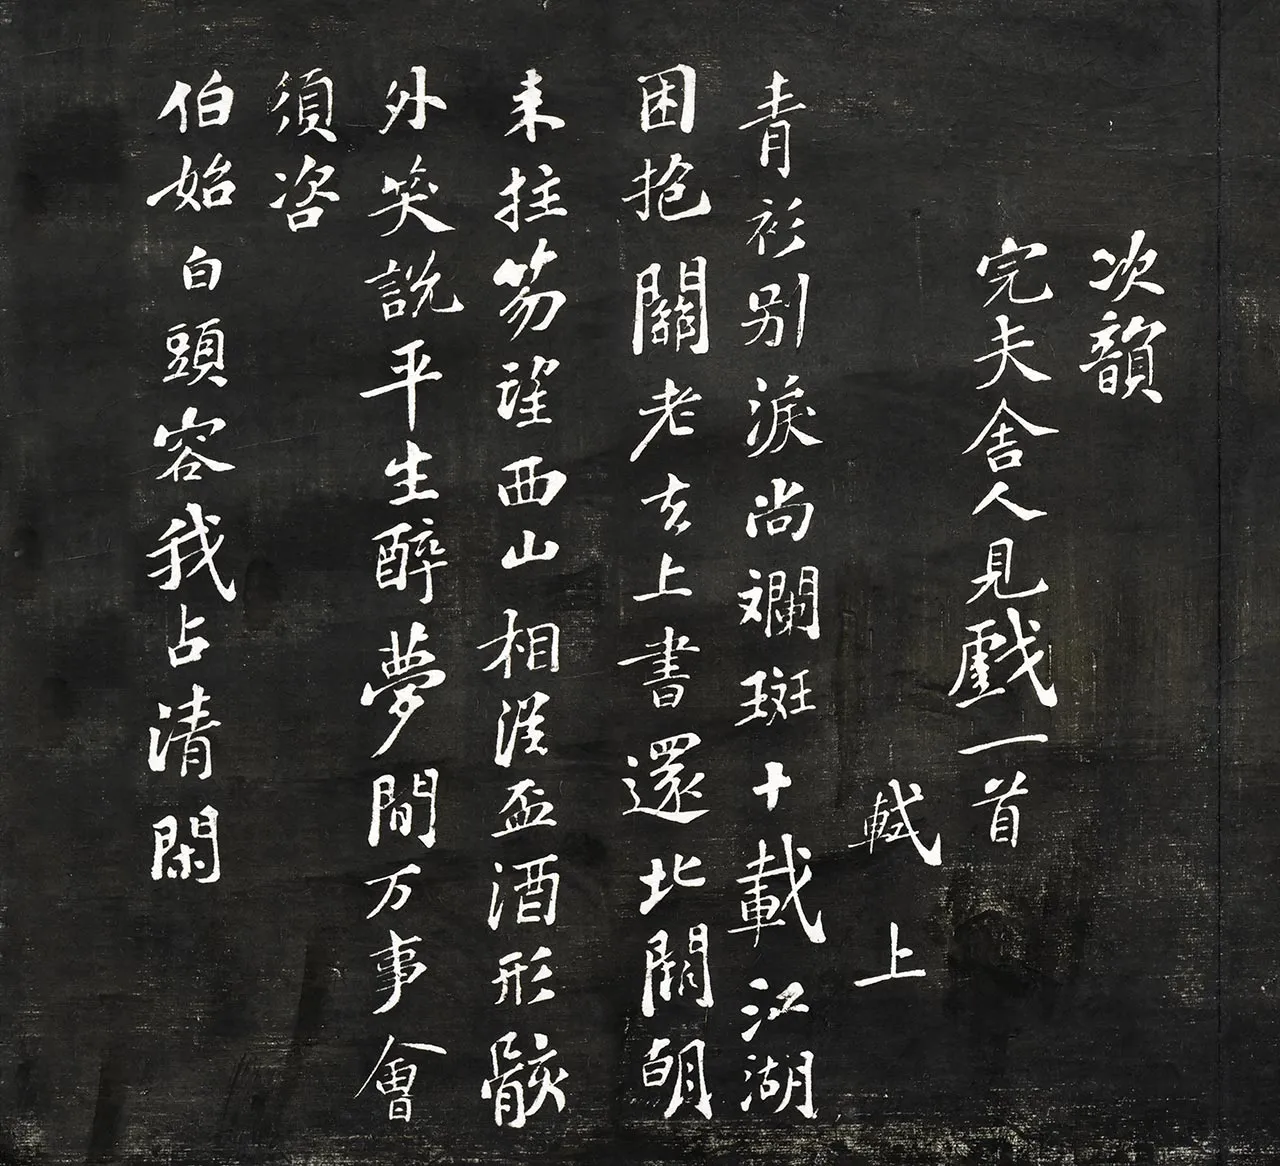 次韻
完夫舍人見戲一首
軾上
青衫別淚尚斕斑十載江湖
困抱關老去上書還北闕朝
来拄笏望西山相從盃酒形骸
外笑說平生醉夢間万事會
須咨
伯始白頭容我占清閑